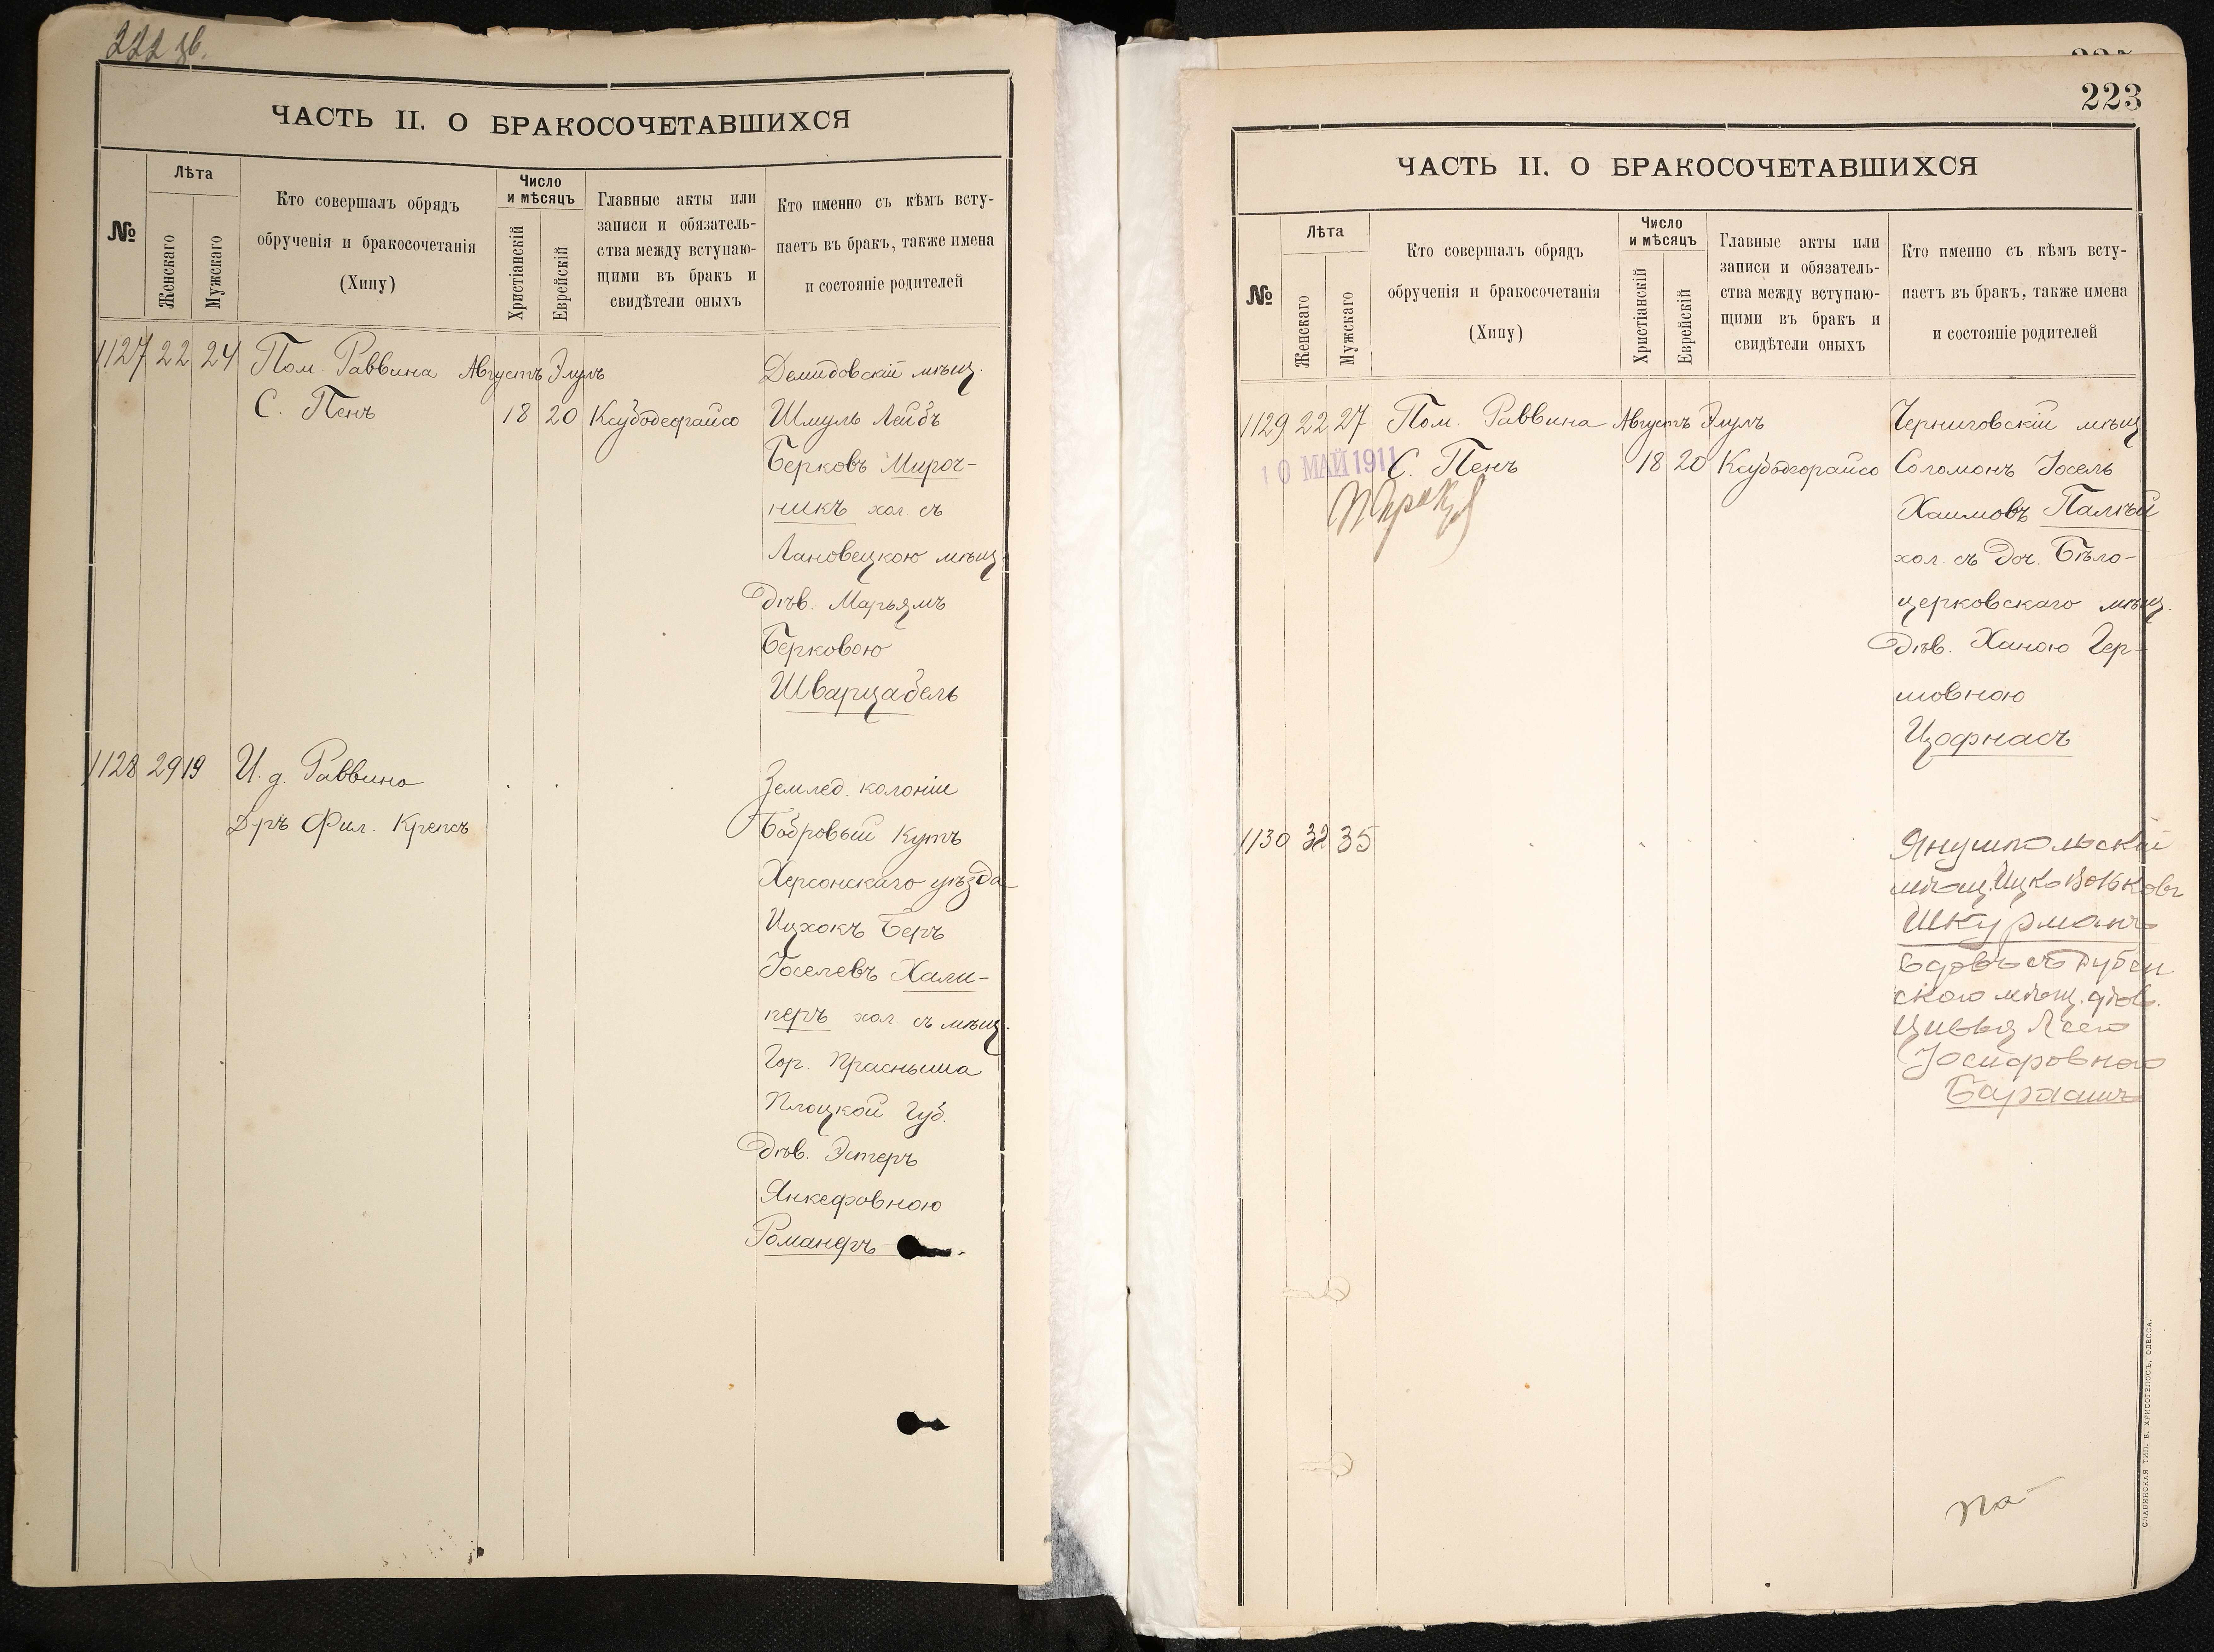 222 зв.
ЧАСТЬ II. О БРАКОСОЧЕТАВШИХСЯ
№
Лѣта
Женскаго
Мужскаго
Кто совершалъ обрядъ
обрученія и бракосочетанія
(Хипу)
Число
и мѣсяцъ
Христіанскій
Еврейскій
Главные акты или
записи и обязатель-
ства между вступаю-
щими въ бракъ и
свидѣтели оныхъ
Кто именно съ кѣмъ всту-
паетъ въ бракъ, также имена
и состояніе родителей
1127 22 24 Пом. Раввина Августъ Элулъ Демидовскій мѣщ.
С. Пенъ 18 20 Ксубодеорайсо Шмуль Лейбъ
Берковъ Мироч-
никъ хол. съ
Лановецкою мѣщ.
Дѣв. Марьямъ
Берковою
Шварцабель
1128 29 19 И. д. Раввина Землед. колоніи
Д-ръ Фил. Крепсъ Бобровый Кутъ
Херсонскаго уѣзда
Ицхокъ Беръ
Іоселевъ Хали-
перъ хол. съ мѣщ.
Гор. Прасныша
Плоцкой Губ.
Дѣв. Эстеръ
Янкефовною
Романеръ
223
ЧАСТЬ II. О БРАКОСОЧЕТАВШИХСЯ
№
Лѣта
Женскаго
Мужскаго
Кто совершалъ обрядъ
обрученія и бракосочетанія
(Хипу)
Число
и мѣсяцъ
Христіанскій
Еврейскій
Главные акты или
записи и обязатель-
ства между вступаю-
щими въ бракъ и
свидѣтели оныхъ
Кто именно съ кѣмъ всту-
паетъ въ бракъ, также имена
и состояніе родителей
1129 22 27 Пом. Раввина Августъ Элулъ Черниговскій мѣщ
10 МАЙ 1911 С. Пенъ 18 20 Ксубодеорайсо Соломонъ Іосель
Хаимовъ Палѣй
хол. съ Доч. Бѣло-
церковскаго мѣщ.
Дѣв. Ханою Гер-
шовною
Цофнасъ
1130 32 35 Янушпольскій
мѣщ. Ицко Волковъ
Шкурманъ
вдовъ съ Дубен
скою мѣщ. дѣв.
Цивья Леею
Іосифовною
Бармашъ
СЛАВЯНСКАЯ ТИП. Е. ХРИСОГЕЛОСЪ, ОДЕССА.